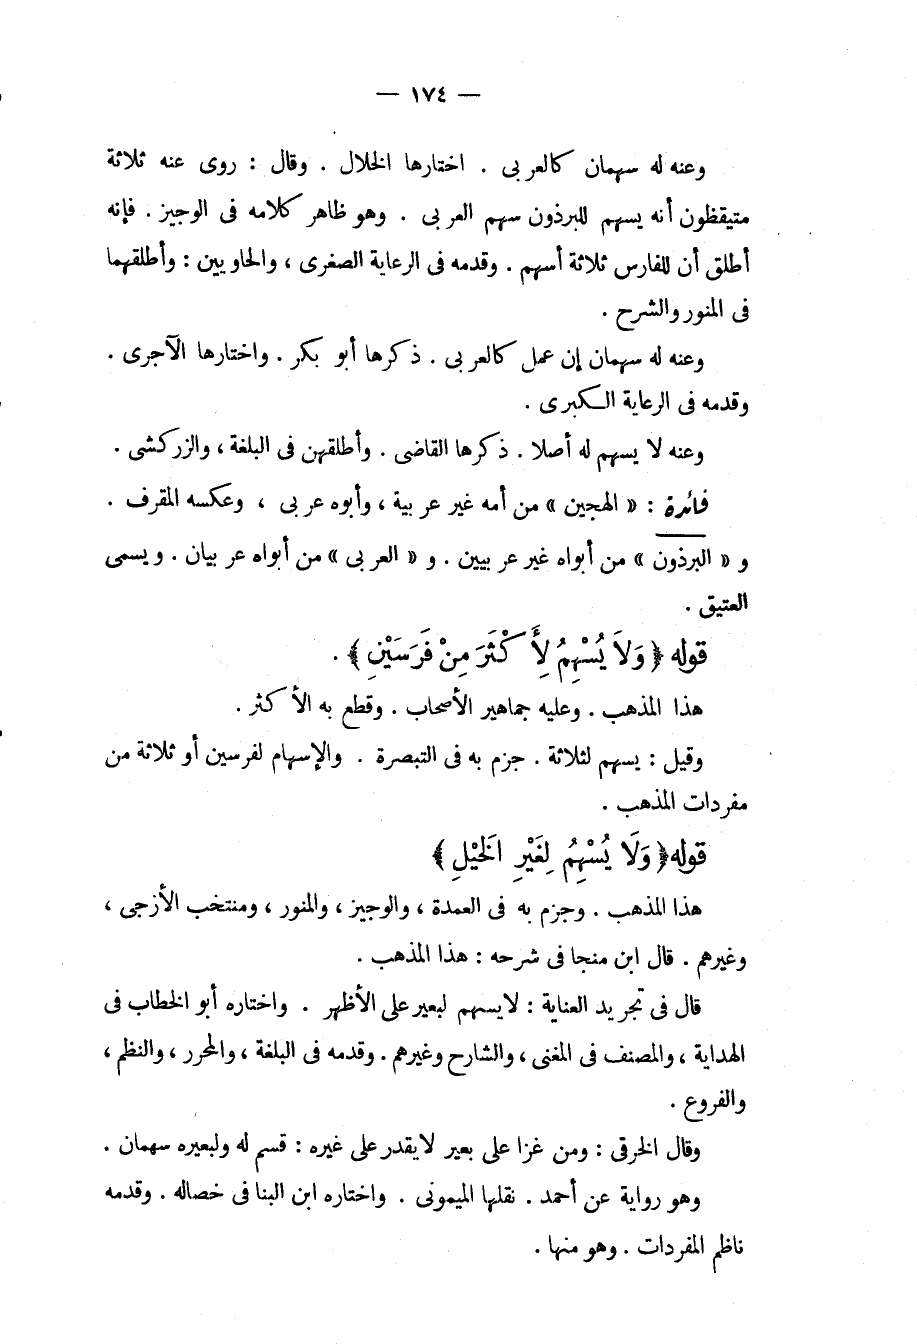 — ١٧٤ —
وعنه له سهمان كالعربى . اختارها الخلال . وقال : روى عنه ثلاثة
متيقظون أنه يسهم للبرذون سهم العربى . وهو ظاهر كلامه فى الوجيز . فإنه
أطلق أن للفارس ثلاثة أسهم . وقدمه فى الرعاية الصغرى ، والحاويين : وأطلقهما
فى المنور والشرح .
وعنه له سهمان إن عمل كالعربى . ذكرها أبو بكر . واختارها الآجرى .
وقدمه فى الرعاية الكبرى .
وعنه لا يسهم له أصلا . ذكرها القاضى . وأطلقهن فى البلغة ، والزركشى .
فائدة : « الهجين » من أمه غير عربية ، وأبوه عربى ، وعكسه المقرف .
و « البرذون » من أبواه غير عربيين . و « العربى » من أبواه عربيان . ويسمى
العتيق .
قوله ﴿ وَلاَ يُسْهِمُ لِأَكْثَرَ مِنْ فَرَسَيْنِ ﴾ .
هذا المذهب . وعليه جماهير الأصحاب . وقطع به الأكثر .
وقيل : يسهم لثلاثة . جزم به فى التبصرة . والإسهام لفرسين أو ثلاثة من
مفردات المذهب .
قوله ﴿ وَلَا يُسْهِمُ لِغَيْرِ الْخَيْلِ ﴾
هذا المذهب . وجزم به فى العمدة ، والوجيز ، والمنور ، ومنتخب الأزجى ،
وغيرهم . قال ابن منجا فى شرحه : هذا المذهب .
قال فى تجريد العناية : لايسهم لبعير على الأظهر . واختاره أبو الخطاب فى
الهداية ، والمصنف فى المغنى ، والشارح وغيرهم . وقدمه فى البلغة ، والمحرر ، والنظم ،
والفروع .
وقال الخرقى : ومن غزا على بعير لايقدر على غيره : قسم له ولبعيره سهمان .
وهو رواية عن أحمد . نقلها الميمونى . واختاره ابن البنا فى خصاله . وقدمه
ناظم المفردات . وهو منها .